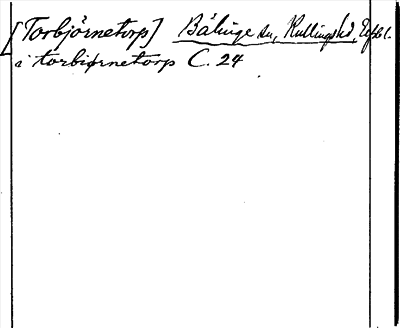 [Torbjörnetorp] Bälinge sn, Kullings hd, Äfsbl.
i torbiørnetorp C. 24